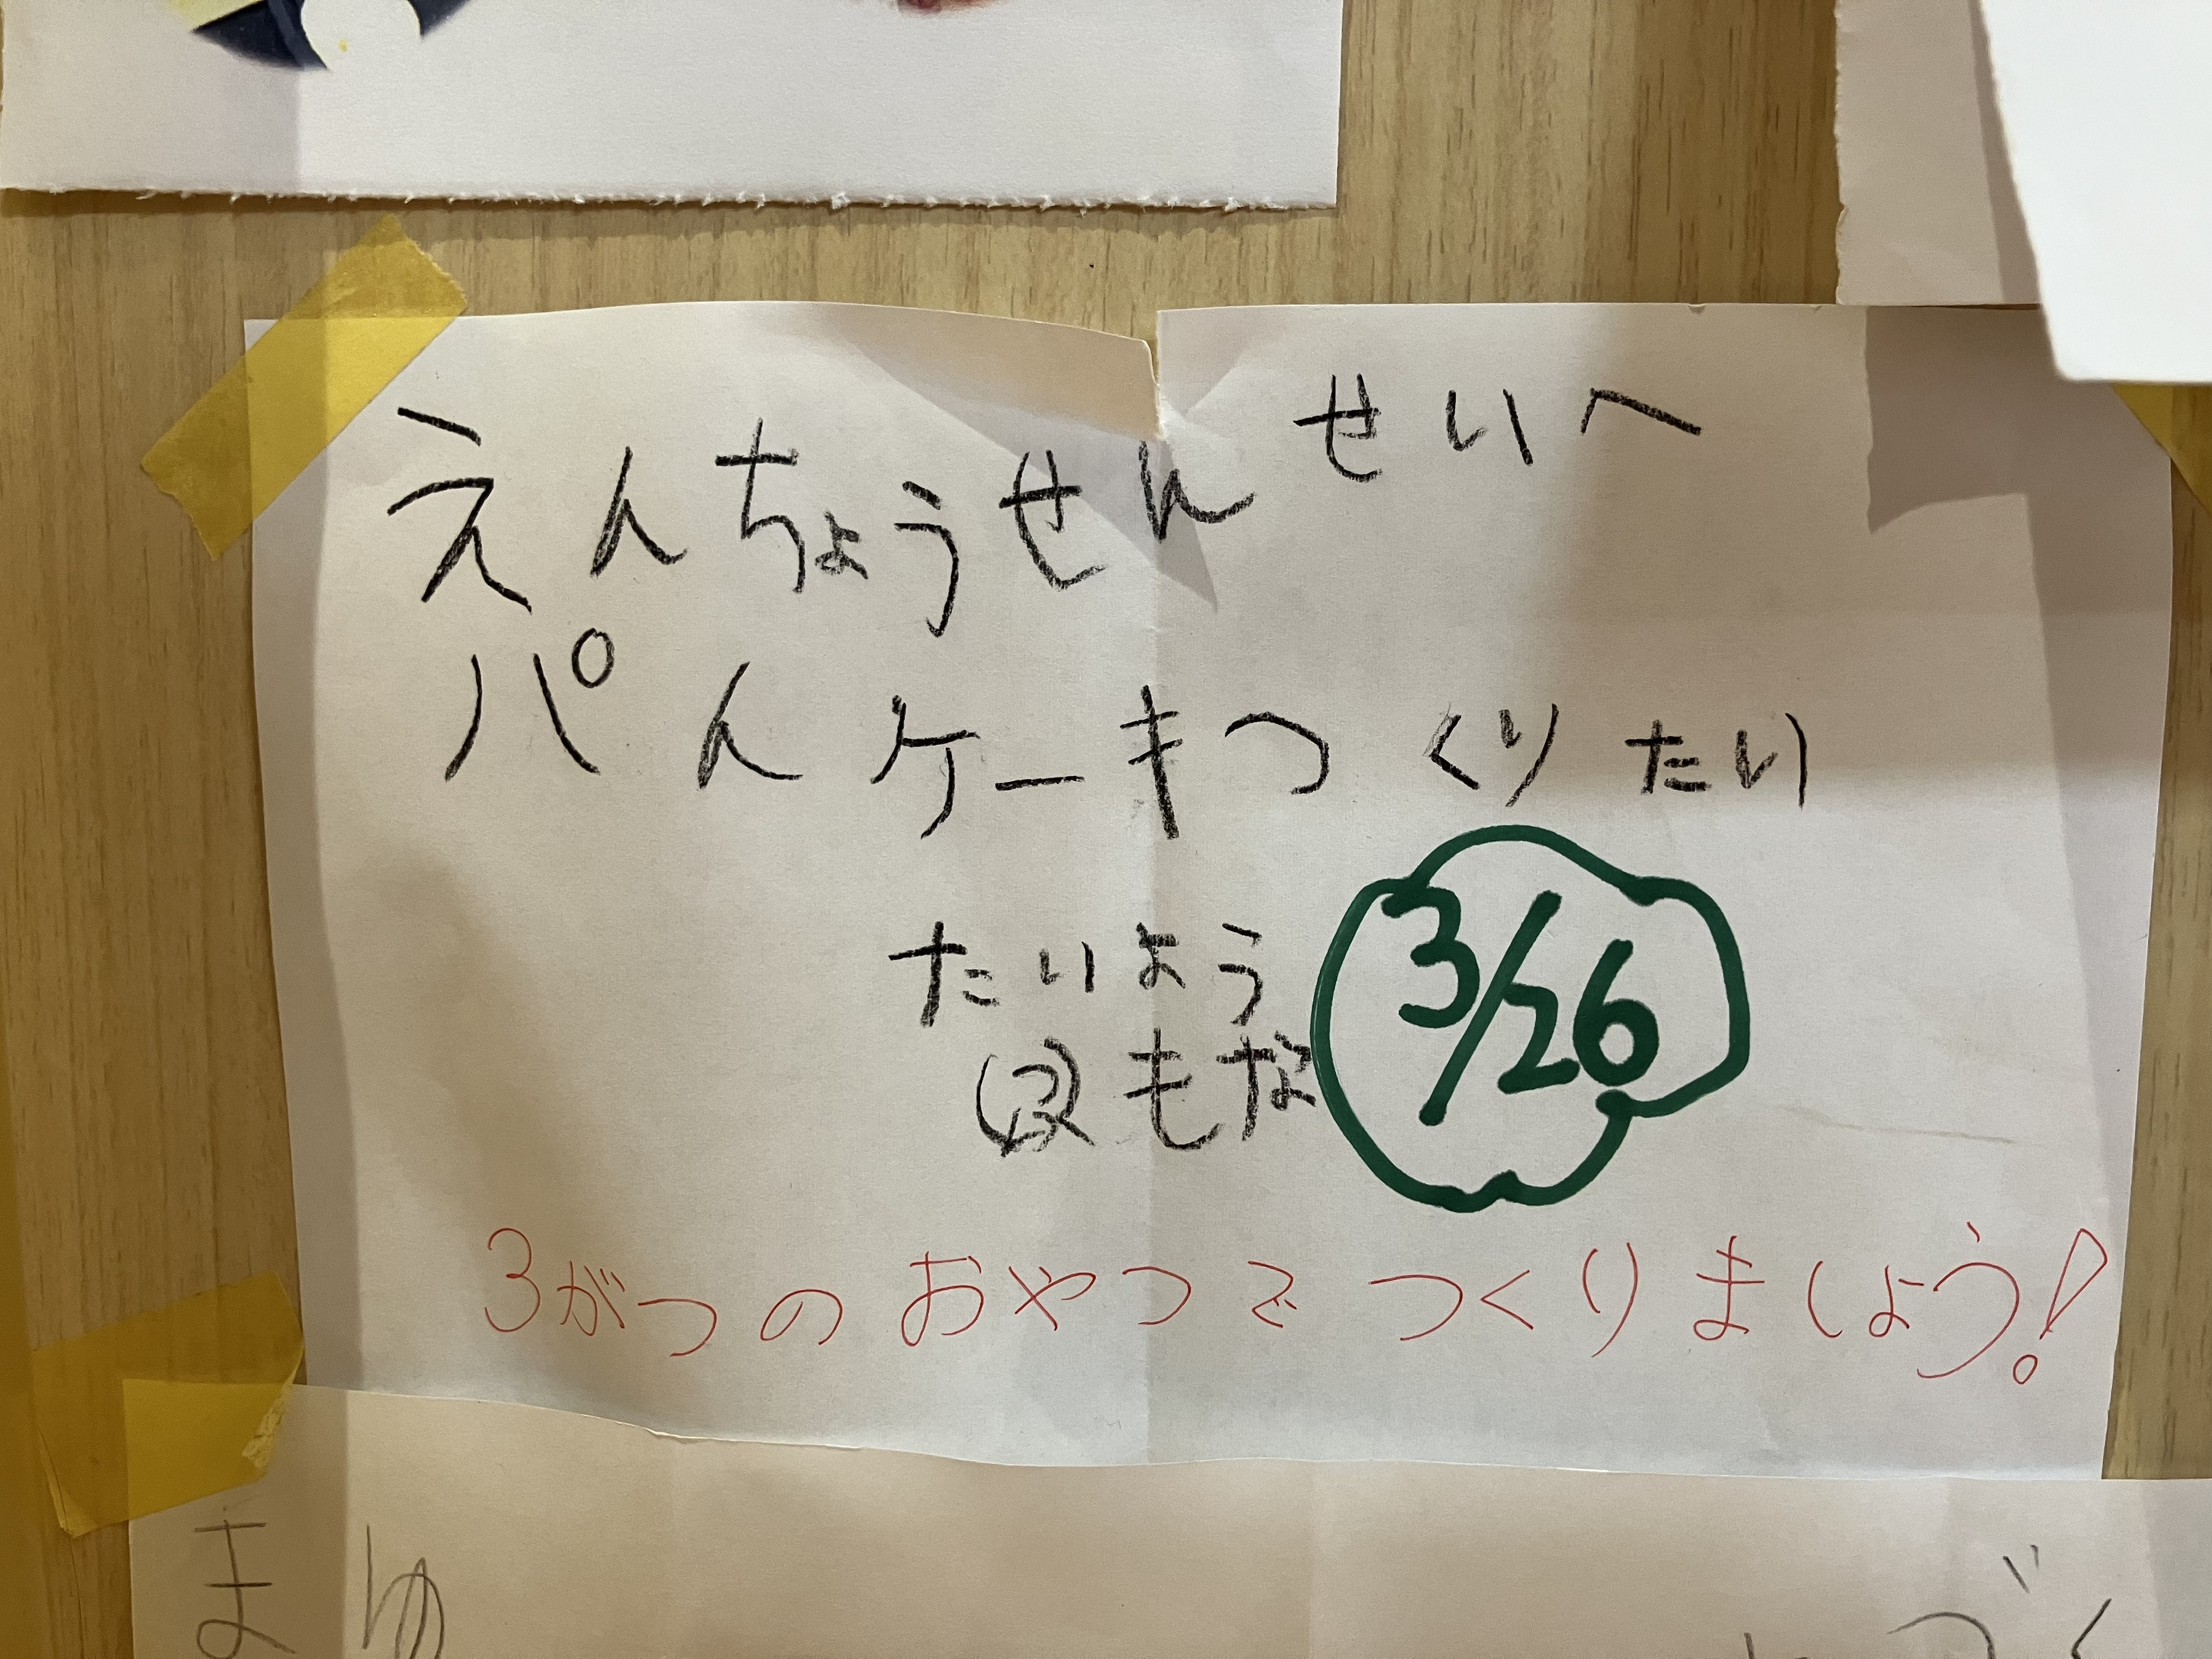 えんちょうせんせいへ
パんケーキつくりたい
たいよう
ももな
3/26
3がつのおやつでつくりましょう!
まゆ